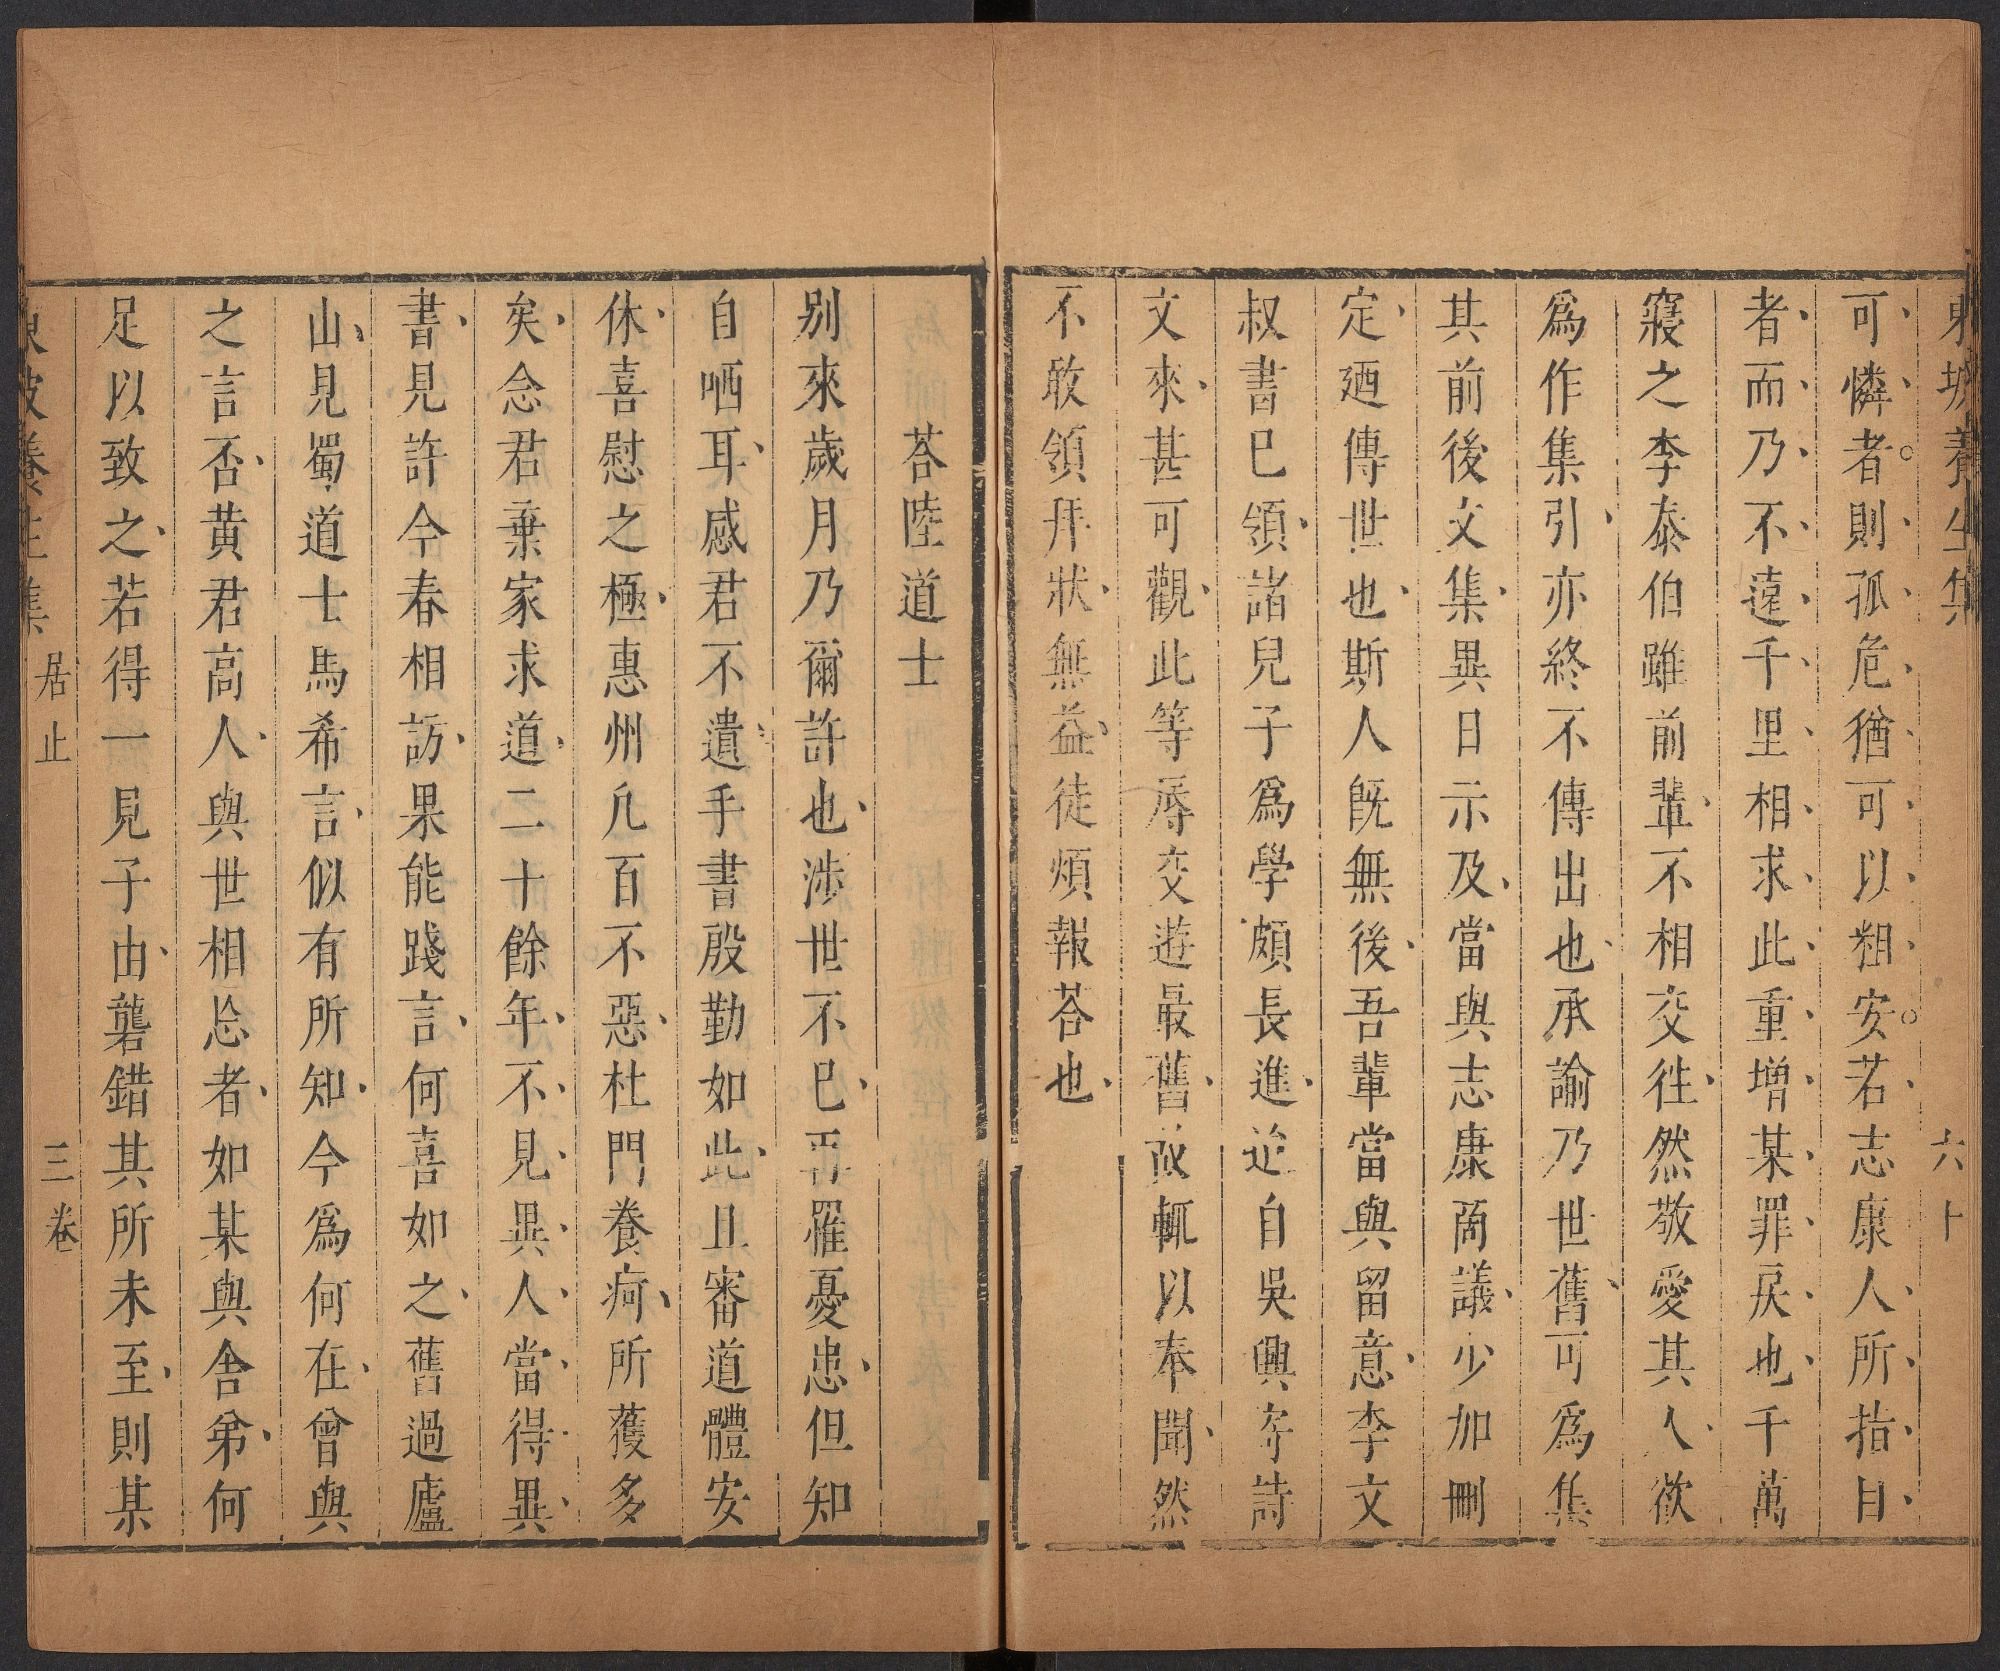 東坡養生集 六十
可憐者則孤危猶可以粗安若志康人所指目
者而乃不遠千里相求此重增某罪戾也千萬
寢之李泰伯雖前輩不相交徃然敬愛其人欲
爲作集引亦終不傳出也承諭乃世舊可爲集
其前後文集異日示及當與志康商議少加刪
定廼傳世也斯人旣無後吾輩當與留意李文
叔書已領諸兒子爲學頗長進迨自吳興寄詩
文來甚可觀此等辱交遊最舊故輒以奉聞然
不敢領拜狀無益徒煩報荅也
荅陸道士
别來歲月乃爾許也涉世不已再罹憂患但知
自哂耳感君不遺手書殷勤如此且審道體安
休喜慰之極惠州凡百不惡杜門養疴所獲多
矣念君棄家求道二十餘年不見異人當得異
書見許今春相訪果能踐言何喜如之舊過廬
山見蜀道士馬希言似有所知今爲何在曾與
之言否黄君高人與世相忘者如某與舍弟何
足以致之若得一見子由礱錯其所未至則某
東坡養生集 居止 三卷